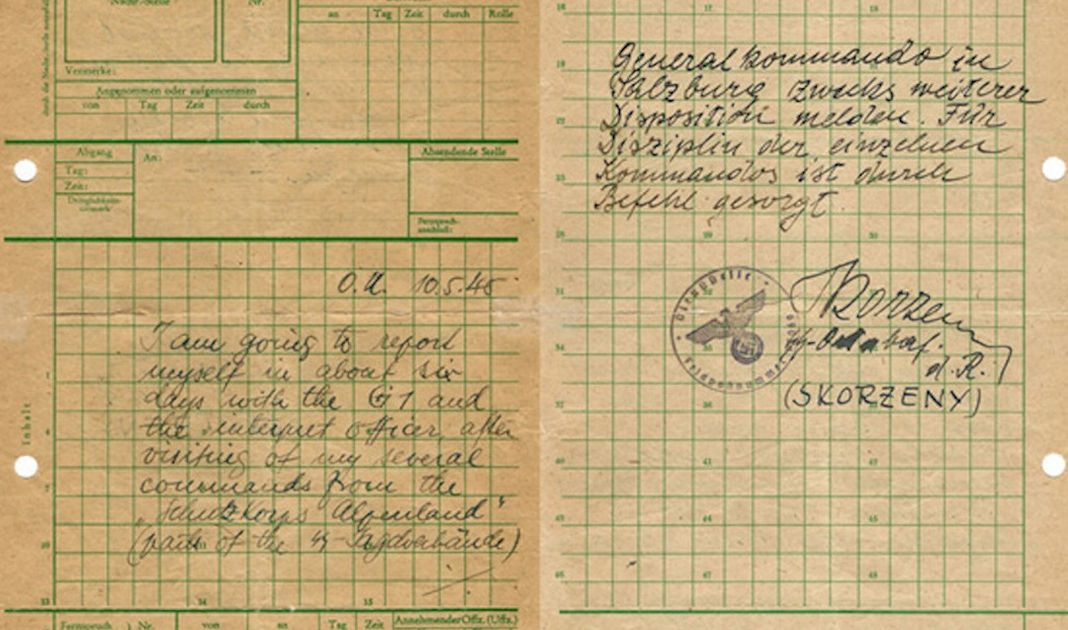 Nachr.-Stelle
Nr.
an Tag Zeit durch Rolle
Vermerke:
Angenommen oder aufgenommen
von Tag Zeit durch
Abgang
Tag:
Zeit:
An:
Absendende Stelle
Fernsprech-
anschluß:
O.U. 10.5.45
I am going to report
myself in about six
days with the G1 and
the interpret officer, after
visiting of my several
commands from the
„Schutzkorps Alpenland“
(parts of the SS-Jagdverbände)
Inhalt
1
4
7
10
13 14 15
Fernspruch Nr. von an Tag Zeit Annehmender Offz. (Uffz.)
16 17 18
19
Generalkommando in
Salzburg zwecks weiterer
Disposition melden. Für
Disziplin der einzelnen
Kommandos ist durch
Befehl gesorgt.
22
25
28 29 30
31 32
34
35
37 38
40 41 42
43 44 45
46 47 48
Dienststelle
Feldpostnummer
Skorzeny
SS-Ostubaf.
d. R.
(SKORZENY)